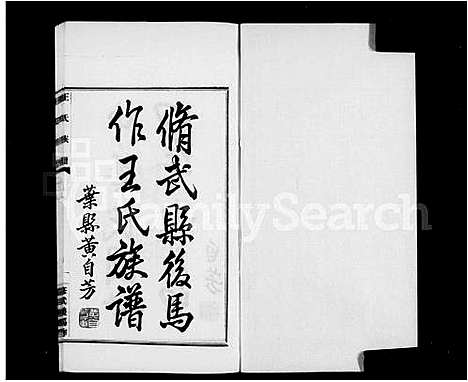 脩武縣後馬
作王氏族譜
葉縣黃自芳
FamilySearch